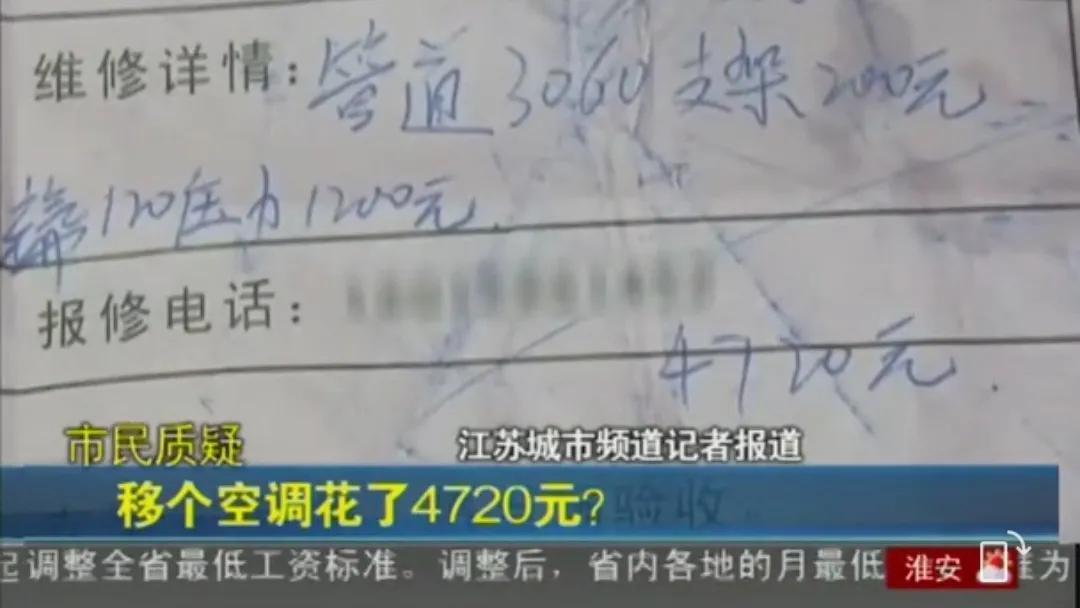 维修详情：管道3060 支架200元
120压力1200元
报修电话：
4720元.
市民质疑
江苏城市频道记者报道
移个空调花了4720元?
验收
起调整全省最低工资标准。调整后，省内各地的月最低
淮安
准为